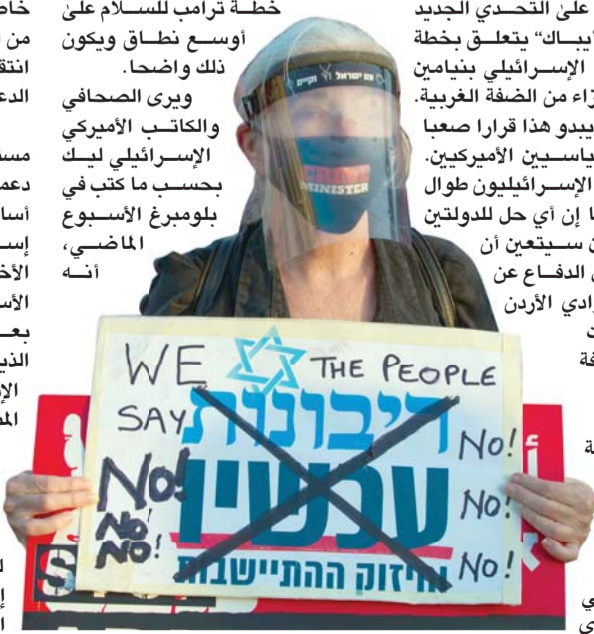 على التحـدي الجديد
أيبـاك" يتعلـق بخطة
الإسـرائيلي بنيامين
زاء من الضفة الغربية.
يبدو هذا قرارا صعبا
ياسـيين الأميركيين.
الإسـرائيليون طوال
ا إن أي حل للدولتين
ن سـيتعين أن
الدفـاع عن
ادي الأردن
خطـة ترامب للسـلام على
أوسـع نطـاق ويكون
ذلك واضحا.
ويرى الصحافي
والكاتـب الأميركي
الإسـرائيلي ليـك
بحسـب ما كتب في
بلومبرغ الأسـبوع
الماضـي،
أنـه
עם ישראל חי וקיים
CRIME
MINISTER
WE THE PEOPLE
SAY
ריבונות
עכשיו
חיזוק ההתיישבות
No!
No!
No!
No!
No!
No!